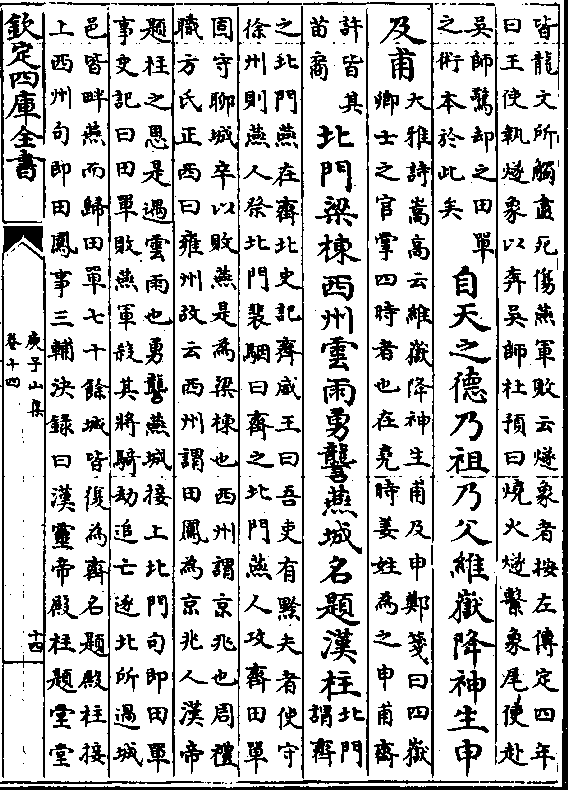 皆龍文所觸盡死傷燕軍敗云燧象者按左傳定四年
曰王使執燧象以奔吳師杜預曰燒火燧繫象尾使赴
吳師驚却之田單
之術本於此矣
自天之德乃祖乃父維嶽降神生申
及甫
大雅詩嵩高云維嶽降神生甫及申鄭箋曰四嶽
卿士之官掌四時者也在堯時姜姓為之申甫齊
許皆其
苗裔
北門梁棟西州雲雨勇讋燕城名題漢柱
北門
謂齊
之北門燕在齊北史記齊威王曰吾吏有黔夫者使守
徐州則燕人祭北門裴駰曰齊之北門燕人攻齊田單
固守聊城卒以敗燕是為梁棟也西州謂京兆也周禮
職方氏正西曰雍州故云西州謂田鳳為京兆人漢帝
題柱之思是遇雲雨也勇讋燕城接上北門句即田單
事史記曰田單敗燕軍殺其將騎劫追亡逐北所過城
邑皆畔燕而歸田單七十餘城皆復為齊名題殿柱接
上西州句即田鳳事三輔決録曰漢靈帝殿柱題堂堂
欽定四庫全書
庾子山集
卷十四
十四